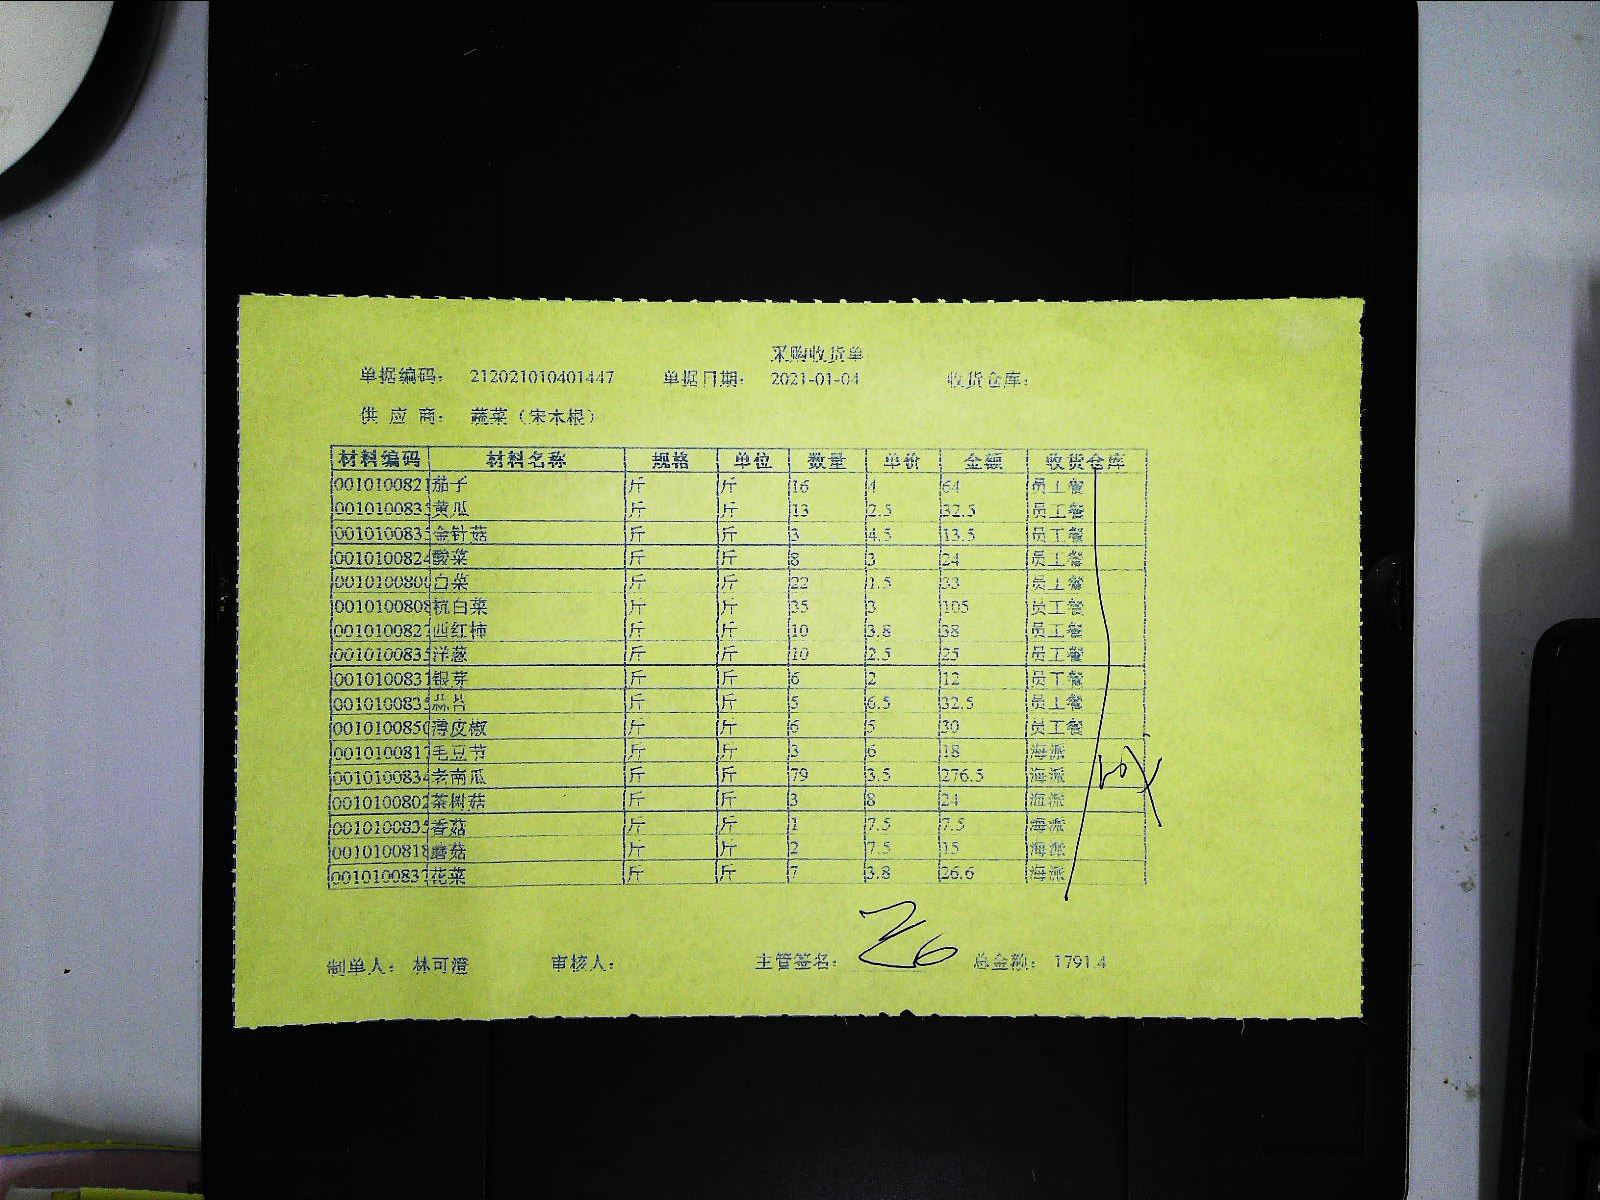 采购收货单
单据编码： 212021010401447 单据日期： 2021-01-04 收货仓库：
供 应 商： 蔬菜（宋木根）
材料编码 材料名称 规格 单位 数量 单价 金额 收货仓库
0010100821 茄子 斤 斤 16 4 64 员工餐
001010083 黄瓜 斤 斤 13 2.5 32.5 员工餐
001010083 金针菇 斤 斤 3 4.5 13.5 员工餐
001010082 酸菜 斤 斤 8 3 24 员工餐
001010080 白菜 斤 斤 22 1.5 33 员工餐
0010100808 杭白菜 斤 斤 35 3 105 员工餐
001010082 西红柿 斤 斤 10 3.8 38 员工餐
001010083 洋葱 斤 斤 10 2.5 25 员工餐
001010083 银芽 斤 斤 6 2 12 员工餐
001010083 蒜片 斤 斤 5 6.5 32.5 员工餐
001010085 薄皮椒 斤 斤 6 5 30 员工餐
001010081 毛豆节 斤 斤 3 6 18 海派
001010083 老南瓜 斤 斤 79 3.5 276.5 海派
001010080 茶树菇 斤 斤 3 8 24 海派
001010083 香菇 斤 斤 1 7.5 7.5 海派
001010081 蘑菇 斤 斤 2 7.5 15 海派
001010083 花菜 斤 斤 7 3.8 26.6 海派
制单人： 林可澄 审核人： 主管签名： 总金额： 1791.4